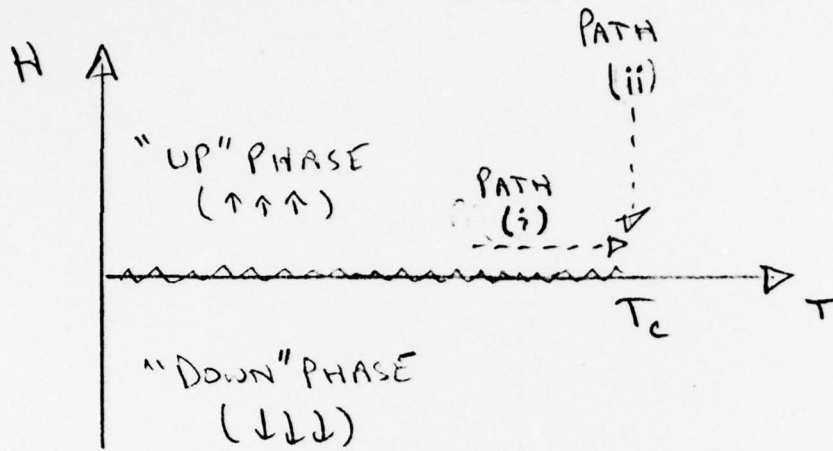 H
PATH
(ii)
"UP" PHASE
(↑↑↑)
PATH
(i)
T_c
T
"DOWN" PHASE
(↓↓↓)